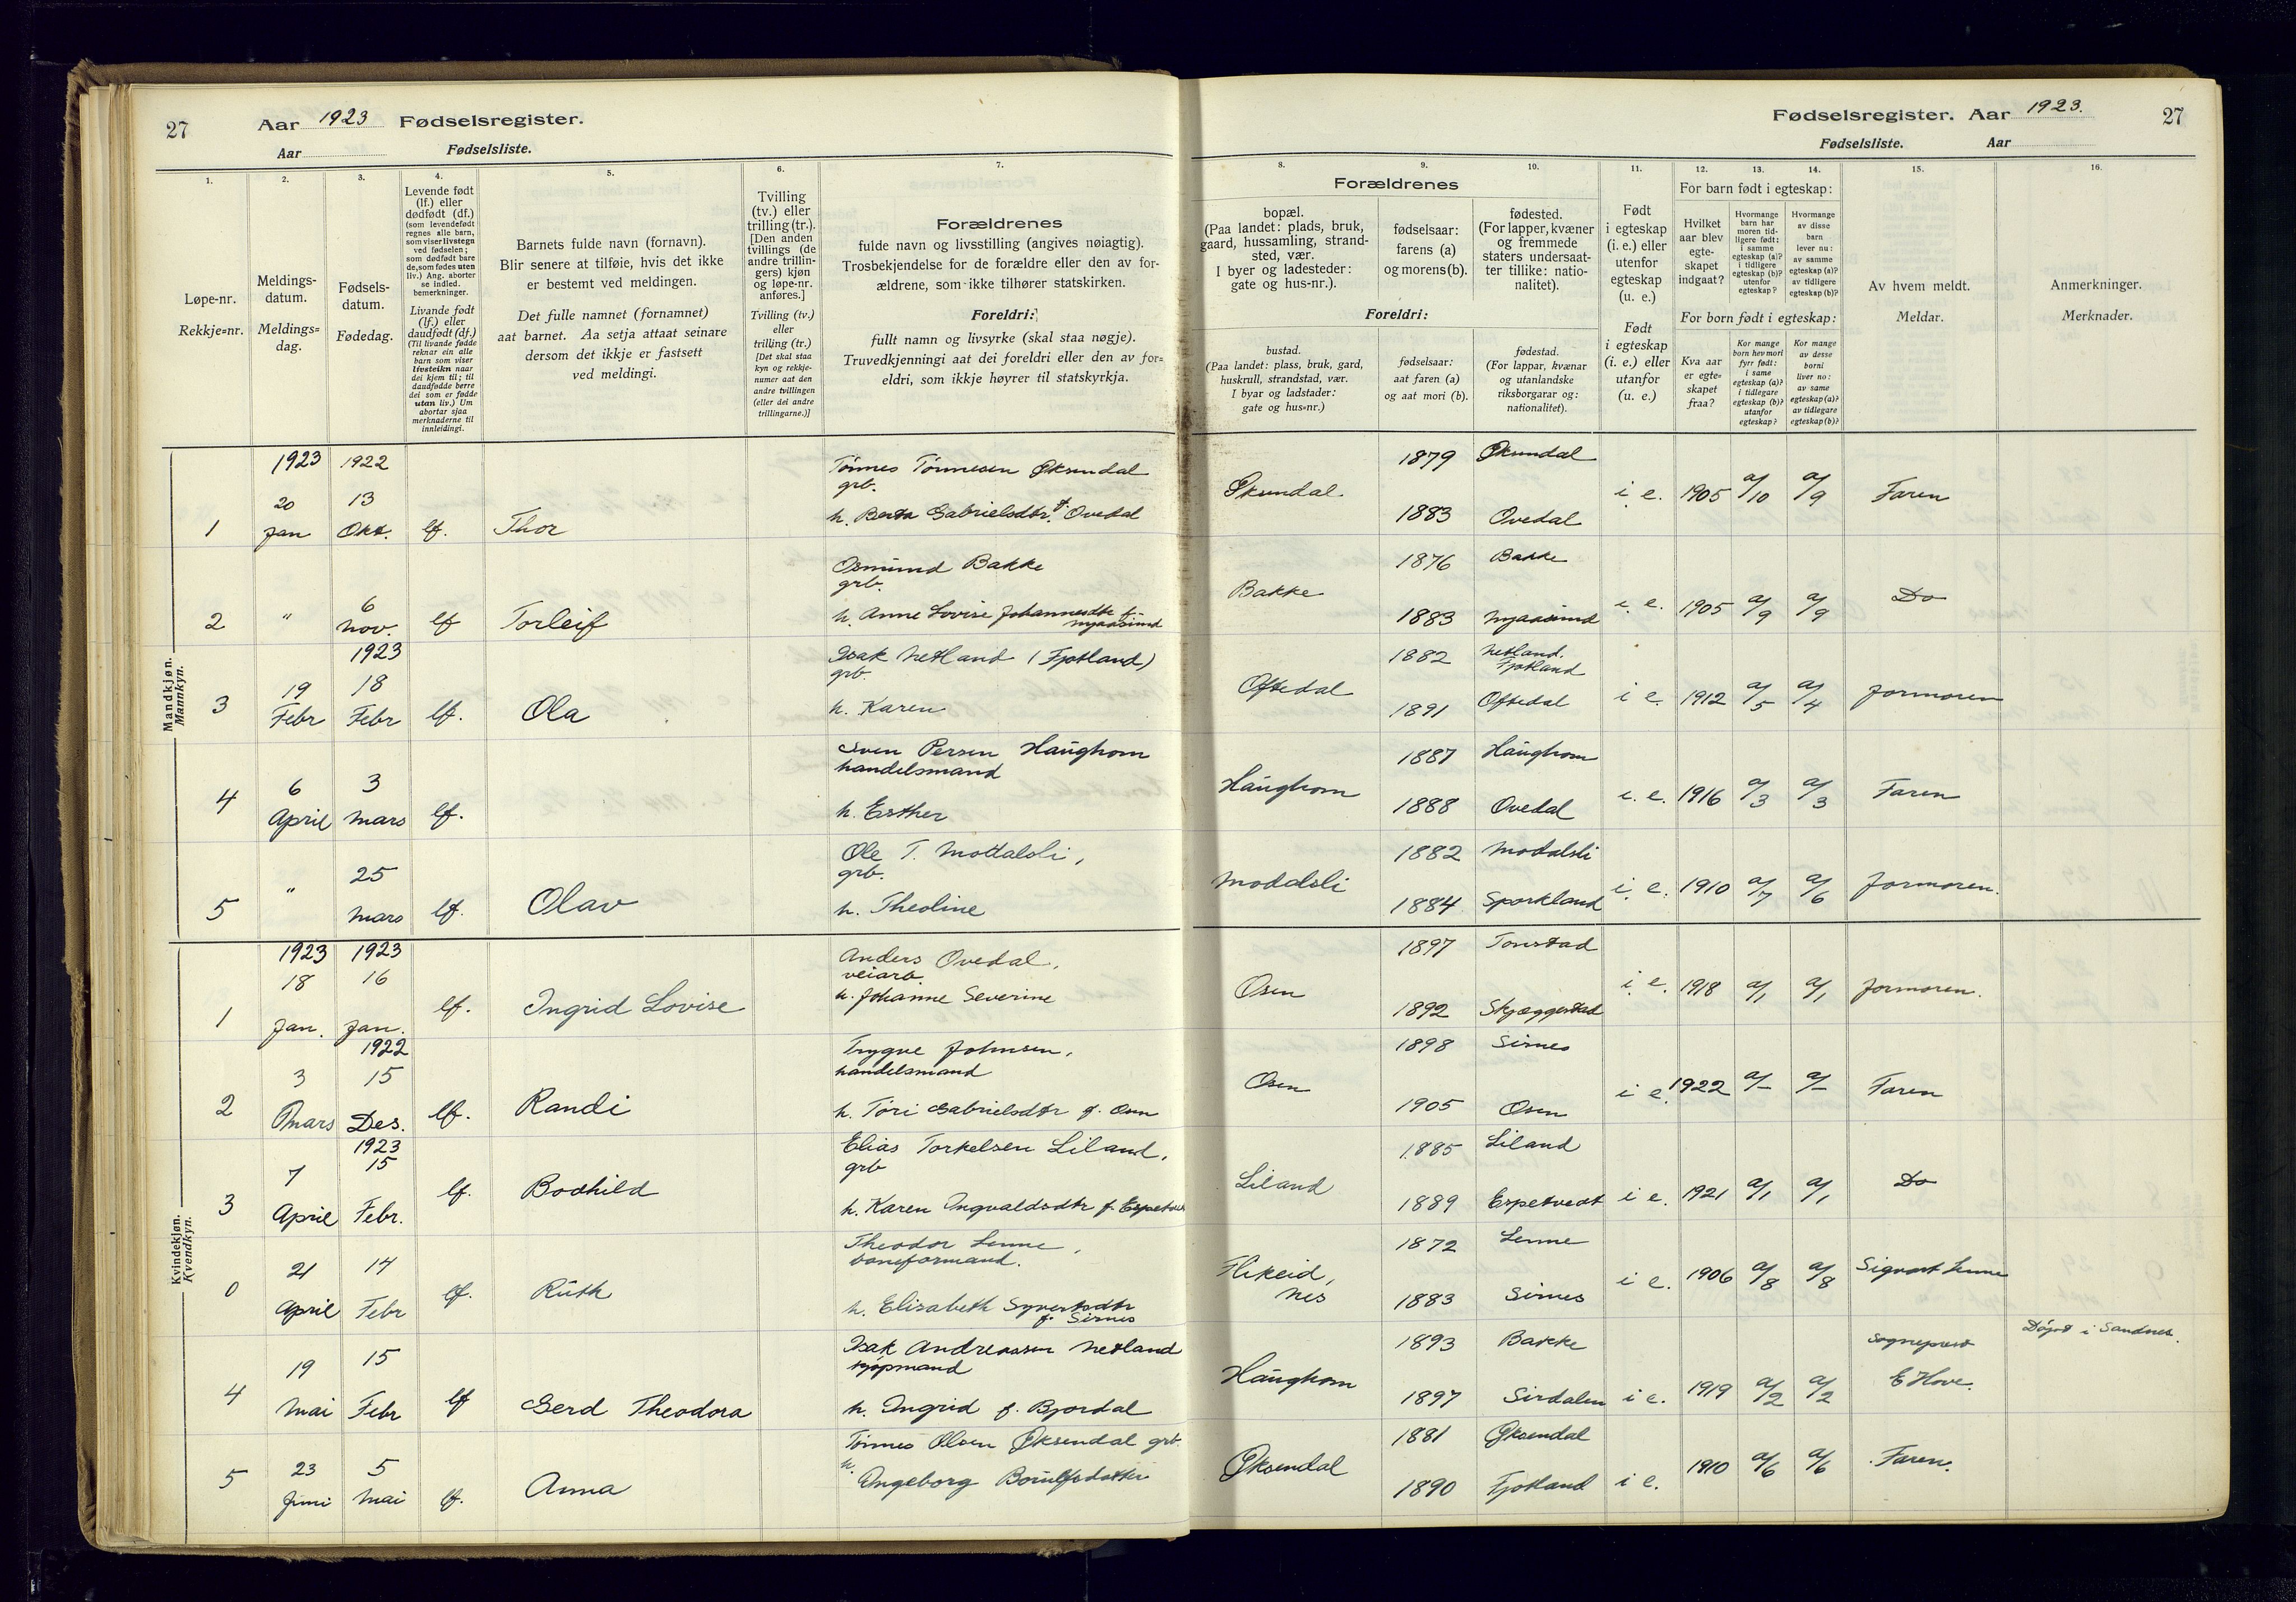 27
Aar 1923 Fødselsregister.
Aar Fødselsliste.
1.
2.
3.
4.
5.
6.
7.
Løpe-nr.
Rekkje=nr.
Meldings-
datum.
Meldings=
dag.
Fødsels-
datum.
Fødedag.
Levende født
(lf.) eller
dødfødt (df.)
(som levendefødt
regnes alle barn,
som viser livstegn
ved fødselen;
som dødfødt bare
de, som fødes uten
liv.) Ang. aborter
se indled.
bemerkninger.
Livande født
(lf.) eller
daudfødt (df.)
(Til livande fødde
reknar ein alle
barn som viser
livsteikn naar
dei kjem til; til
daudfødde berre
dei som er fødde
utan liv.) Um
abortar sjaa
merknaderne til
innleidingi.
Barnets fulde navn (fornavn).
Blir senere at tilføie, hvis det ikke
er bestemt ved meldingen.
Det fulle namnet (fornamnet)
aat barnet. Aa setja attaat seinare
dersom det ikkje er fastsett
ved meldingi.
Tvilling
(tv.) eller
trilling (tr.).
[Den anden
tvillings (de
andre trillin-
gers) kjøn
og løpe-nr.
anføres.]
Tvilling (tv.)
eller
trilling (tr.)
[Det skal staa
kyn og rekkje-
numer aat den
andre tvillingen
(eller dei andre
trillingarne.)]
Forældrenes
fulde navn og livsstilling (angives nøiagtig).
Trosbekjendelse for de forældre eller den av for-
ældrene, som ikke tilhører statskirken.
Foreldri:
fullt namn og livsyrke (skal staa nøgje).
Truvedkjenningi aat dei foreldri eller den av for=
eldri, som ikkje høyrer til statskyrkja.
Mandkjøn.
Mannkyn.
1923 1922
1 20 Jan 13 Okt. lf. Thor
Tønnes Tønnesen Øksendal
grb.
h. Berta Gabrielsdtr. f. Ovedal
2 " 6 Nov. lf Torleif
Osmund Bakke
grb.
h. Anne Lovise Johannesdtr f.
Mjaasund
1923
3 19 Febr 18 Febr lf. Ola
Isak Netland (Fjotland)
grb.
h. Karen
4 6 April 3 Mars lf.
Sven Persen Haughom
handelsmand
h. Esther
5 " 25 Mars lf. Olav
Ole T. Modalsli,
grb.
h. Theoline
Kvindekjøn.
Kvendkyn.
1923 1923
1 18 Jan. 16 Jan. lf. Ingrid Lovise
Anders Ovedal,
veiarb.
h. Johanne Severine
1922
2 3 Mars 15 Des. lf. Randi
Trygve Johnsen,
handelsmand
h. Tori Gabrielsdtr f. Osen
1923
3 7 April 15 Febr. lf. Bodhild
Elias Torkelsen Liland,
grb
h. Karen Ingvaldsdtr f. Espetvedt
0 21 April 14 Febr lf. Ruth
Theodor Lenne,
baneformand.
h. Elisabeth Syvertsdtr
f. Sirnes
4 19 Mai 15 Febr lf Gerd Theodora
Isak Andreassen Netland
kjøpmand
h. Ingrid f. Bjordal
5 23 Juni 5 Mai lf. Anna
Tønnes Olsen Øksendal grb.
h. Ingeborg Borulfsdatter
Fødselsregister. Aar 1923.
27
Fødselsliste. Aar
8.
9.
10.
11.
12.
13.
14.
15.
16.
Forældrenes
bopæl.
(Paa landet: plads, bruk,
gaard, hussamling, strand-
sted, vær.
I byer og ladesteder:
gate og hus-nr.).
fødselsaar:
farens (a)
og morens (b).
fødested.
(For lapper, kvæner
og fremmede
staters undersaat-
ter tillike: natio-
nalitet).
Foreldri:
bustad.
(Paa landet: plass, bruk, gard,
huskrull, strandstad, vær.
I byar og ladstader:
gate og hus=nr.)
fødselsaar:
aat faren (a)
og aat mori (b).
fødestad.
(For lappar, kvænar
og utanlandske
riksborgarar og:
nationalitet).
Født
i egteskap
(i. e.) eller
utenfor
egteskap
(u. e.)
Født
i egteskap
(i. e.) eller
utanfor
(u. e.)
For barn født i egteskap:
Hvilket
aar blev
egte-
skapet
indgaat?
Hvormange
barn har
moren tid-
ligere født:
i samme
egteskap (a)?
i tidligere
egteskap (b)?
utenfor
egteskap?
Hvormange
av disse
barn
lever nu:
av samme
egteskap (a)?
av tidligere
egteskap (b)?
For born født i egteskap:
Kva aar
er egte=
skapet
fraa?
Kor mange
born hev mori
fyrr født:
i same
egteskap (a)?
i tidlegare
egteskap (b)?
utanfor
egteskap?
Kor mange
av desse
borni
liver no:
av same
egteskap (a)?
av tidlegare
egteskap (b)?
Av hvem meldt.
Meldar.
Anmerkninger.
Merknader.
1879 Øksendal
Øksendal. i e. 1905 a/10 a/9 Faren
1883 Ovedal
1876 Bakke
Bakke i. e. 1905 a/9 a/9 Do
1883 Mjaasund
1882 Netland. Fjotland
Oftedal i e. 1912 a/5 a/4 Jormoren
1891 Oftedal
1887 Haughom
Haughom i. e. 1916 a/3 a/3 Faren
1888 Ovedal
1882 Modalsli
Modalsli i. e. 1910 a/7 a/6 Jormoren.
1884 Sporkland
1897 Tonstad
Osen i. e. 1918 a/1 a/1 Jormoren.
1892 Skjeggestad
1898 Sirnes
Osen i e. 1922 a/- a/- Faren
1905 Osen
1885 Liland
Liland i e. 1921 a/1 a/1 Do
1889 Espetvedt
1872 Lenne
Flikeid,
Nes i e. 1906 a/8 a/8 Sigvart Lenne
1883 Sirnes
1893 Bakke
Haughom i e. 1919 a/2 a/2 Sogneprest
E Hove.
Døpt i Sandnes.
1897 Sirdalen
1881 Øksendal
Øksendal i e. 1910 a/6 a/6 Faren.
1890 Fjotland